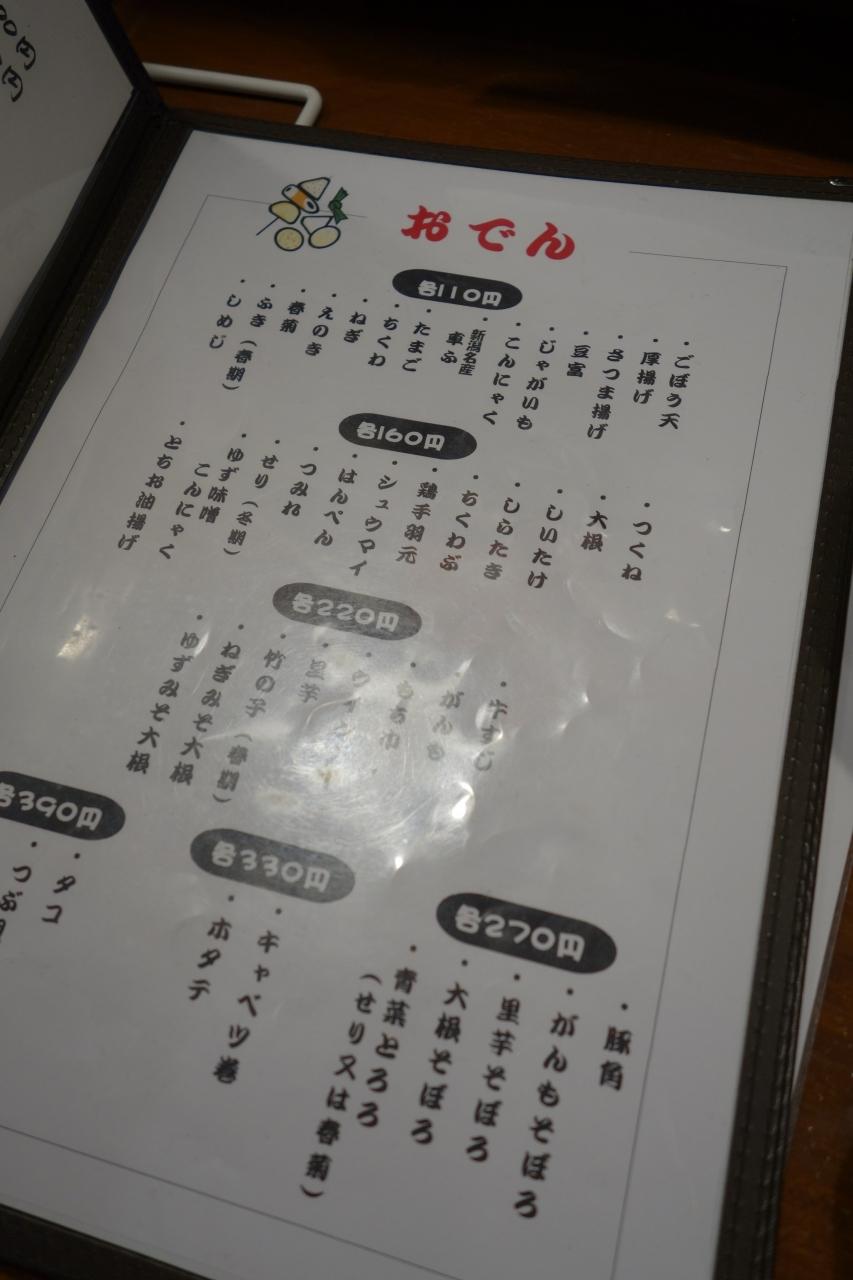 おでん
各110円
・ごぼう天
・厚揚げ
・さつま揚げ
・豆富
・じゃがいも
・こんにゃく
・新潟名産
車ふ
・たまご
・ちくわ
・ねぎ
・えのき
・春菊
・ふき（春期）
・しめじ
各160円
・つくね
・大根
・しいたけ
・しらたき
・ちくわぶ
・鶏手羽元
・シュウマイ
・はんぺん
・つみれ
・せり（冬期）
・ゆず味噌
こんにゃく
・とちお油揚げ
各220円
・牛すじ
・がんも
・もち巾
・里芋
・竹の子（春期）
・ねぎみそ大根
・ゆずみそ大根
各270円
・豚角
・がんもそぼろ
・里芋そぼろ
・大根そぼろ
・青菜とろろ
（せり又は春菊）
各330円
・キャベツ巻
・ホタテ
各390円
・タコ
・つぶ
00円
円